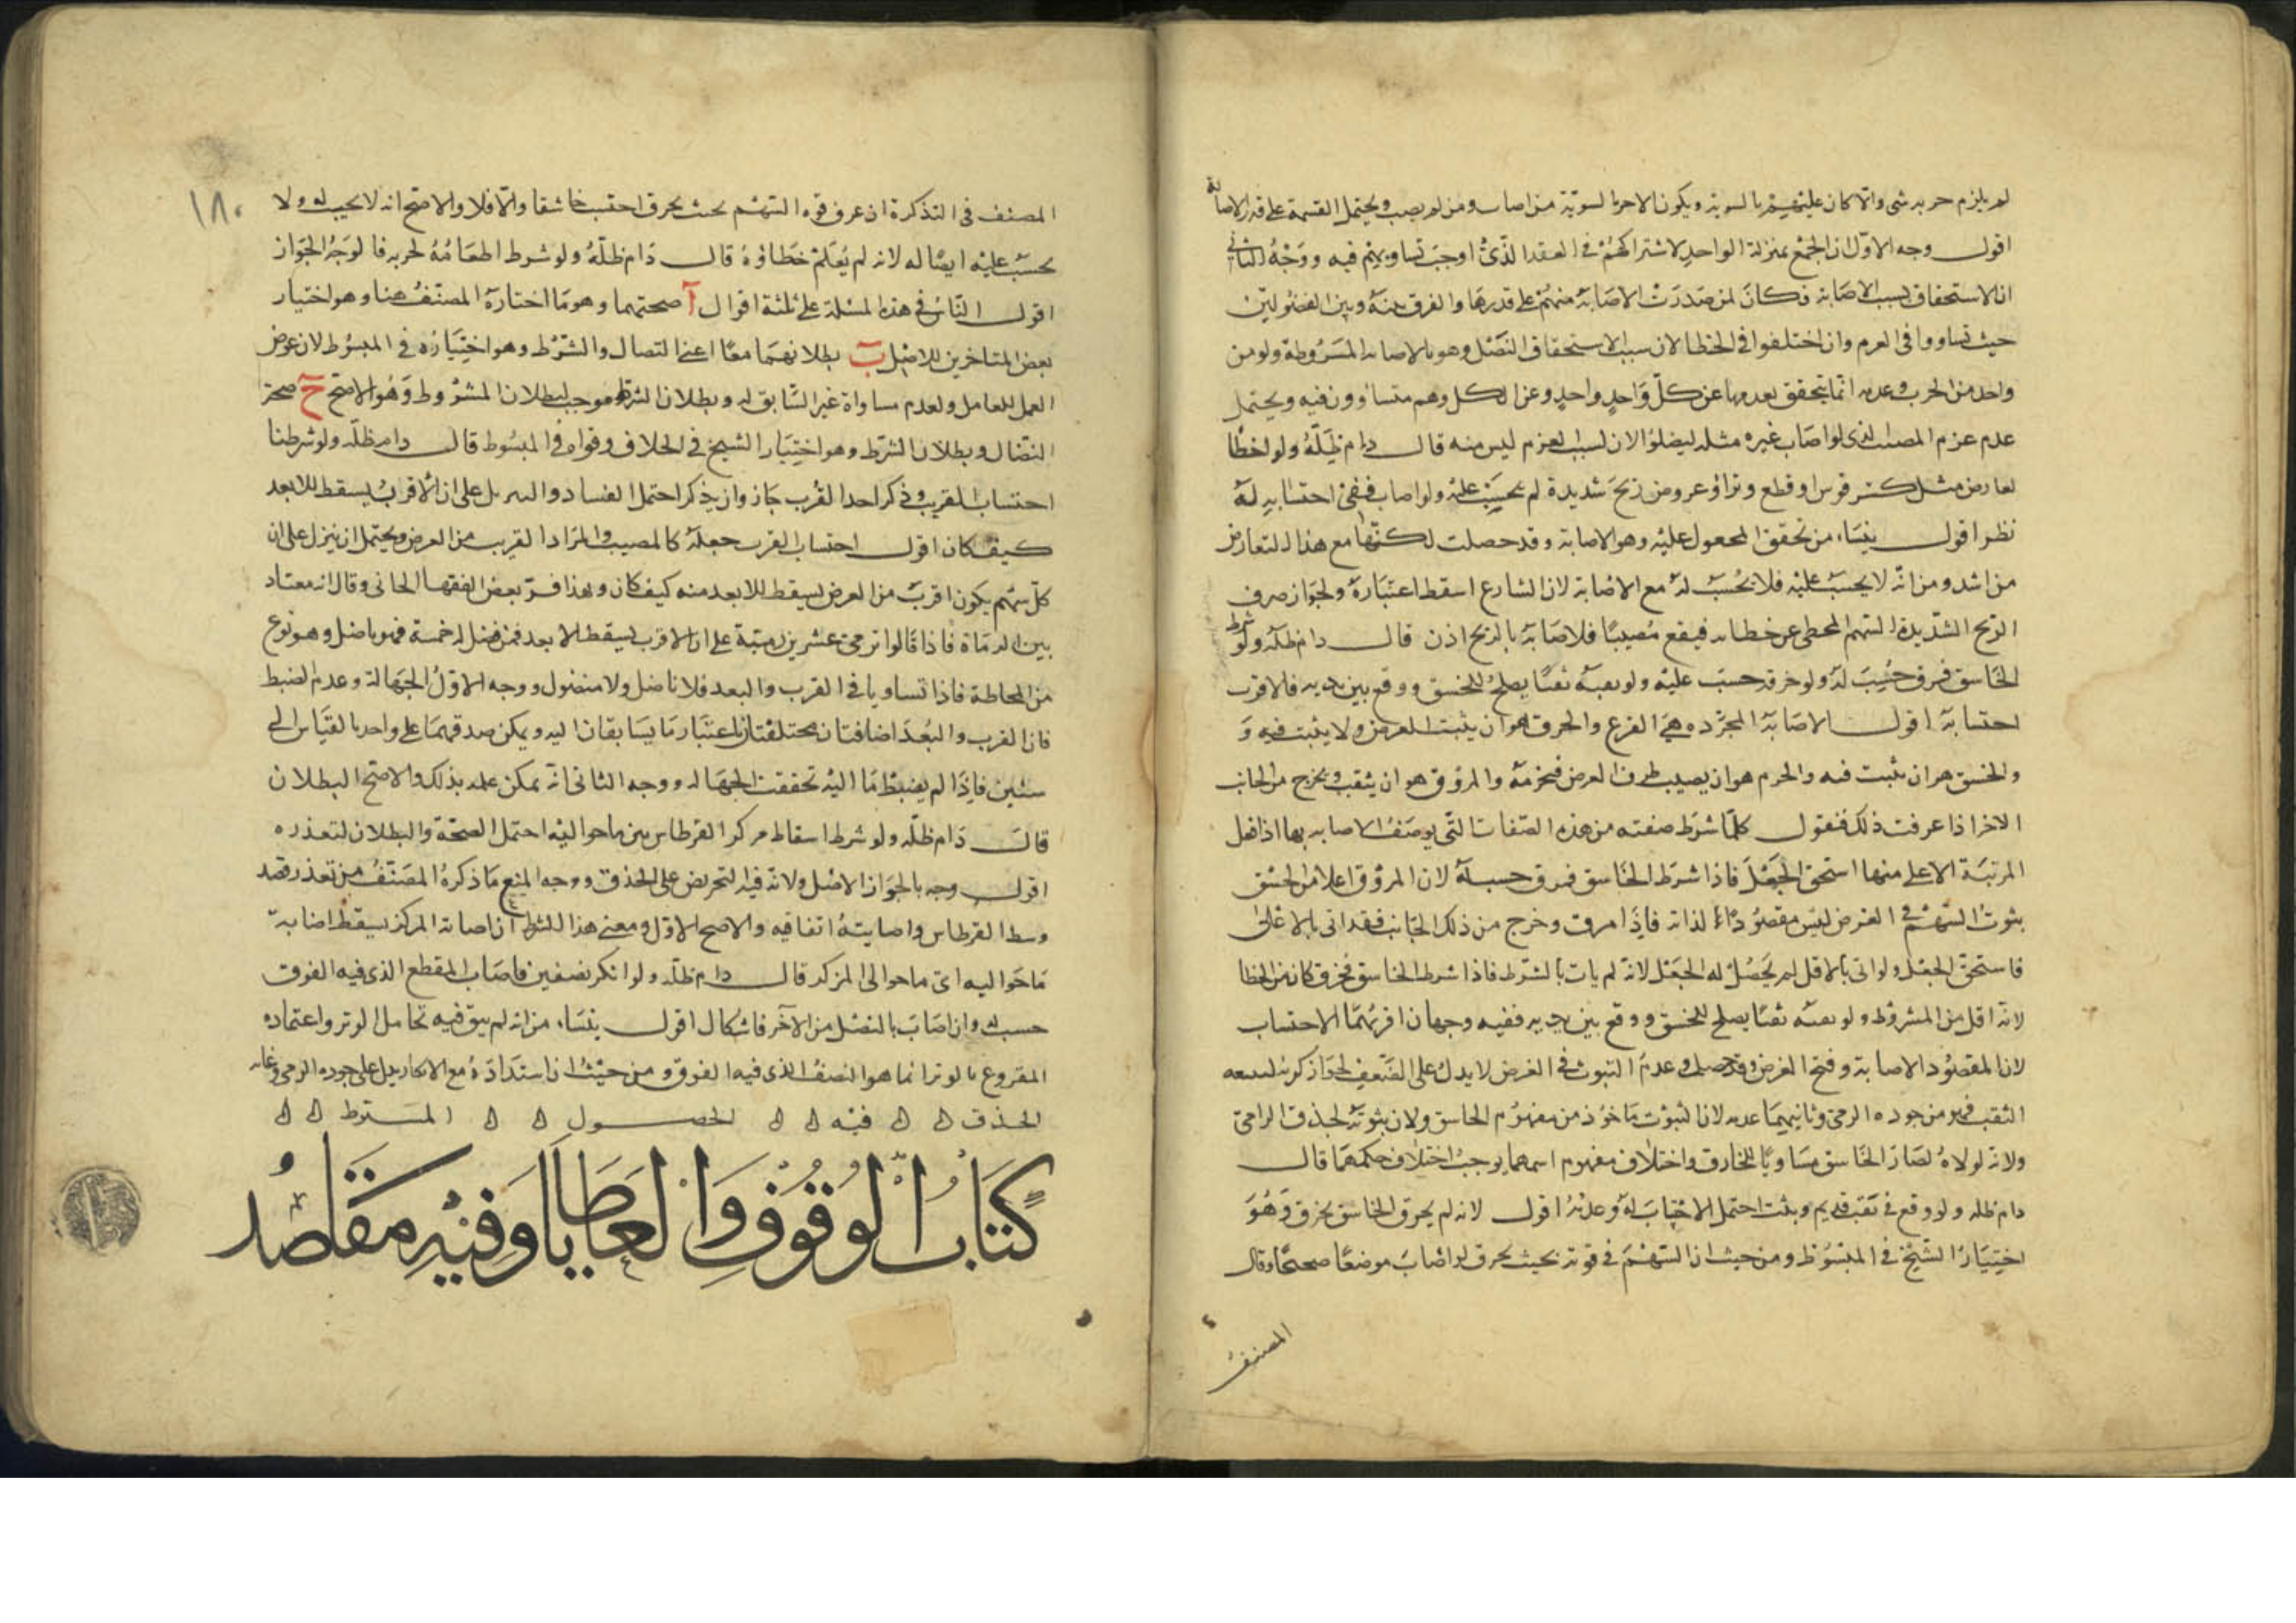 لم يلزم حزبه شئ والا كان عليهم بالسوية ويكون الاخر بالسوية من اصاب ومن لم يصب ويحتمل القسمة على قدر الاصابة
اقول وجه الاول ان الجمع بمنزلة الواحد لاشتراكهم في العقد الذي اوجب تساويهم فيه ووجه الثاني
ان الاستحقاق بسبب الاصابة فكان لمن صدرت الاصابة منهم على قدرها والفرق بينه وبين الفضوليين
حيث تساووا في الغرم وان اختلفوا في الخطا لان سبب الاستحقاق النضل وهو بالاصابة المشروطة ولو من
واحد من الحزب وعدمه انما يتحقق بعدمها عن كل واحد واحد وعن الكل وهم متساوون فيه ويحتمل
عدم غرم المصيب الذي لو اصاب غيره مثله ليضلوا لان لسبب الغرم ليس منه قال دام ظله ولو اخطا
لعارض مثل كسر قوس او قطع وتر او عروض ريح شديدة لم يحسب عليه ولو اصاب ففي احتسابه له
نظر اقول ينشا من تحقق المجعول عليه وهو الاصابة وقد حصلت لكنها مع هذا التعارض
من اشد ومن انه لا يحسب عليه فلا يحسب له مع الاصابة لان الشارع اسقط اعتباره ولجواز صرف
الريح الشديدة السهم المخطى عن خطائه فيقع مصيبا فلا صابة بالريح اذن قال دام ظله ولو شرط
الخاسق فمرق حسب له ولو خرقه حسب عليه ولو ثقبه ثقبا يصلح للخسق ووقع بين يديه فالاقرب
احتسابه اقول الاصابة المجرده هي القرع والخرق هو ان يثبت الغرض ولا يثبت فيه و
والخسق هو ان يثبت فيه والخرم هو ان يصيب طرف الغرض فيخرمه والمروق هو ان يثقب ويخرج من الجانب
الاخر اذا عرفت ذلك فنقول كلما شرط صفته من هذه الصفات التي يوصف الاصابه بها اذا فعل
المرتبة الاعلى منها استحق الجعل فاذا شرط الخاسق فمرق حسب له لان المروق اعلا من الخسق
ثبوت السهم في الغرض ليس مقصودا لذاته فاذا مرق وخرج من ذلك الجانب فقد اتى بالاعلى
فاستحق الجعل ولو اتى بالاقل لم يحصل له الجعل لانه لم يات بالشرط فاذا شرط الخاسق فخرق كان من الخطا
لانه اقل من المشروط ولو ثقبه ثقبا يصلح للخسق ووقع بين يديه ففيه وجهان اقربهما الاحتساب
لان المقصود الاصابة وفتح الغرض وقد حصل وعدم الثبوت في الغرض لا يدل على الضعف لجواز كونه لسعه
الثقب فهو من جوده الرمي وثانيهما عدمه لان الثبوت ماخوذ من مفهوم الخاسق ولان ثبوته لحذق الرامي
ولانه لولاه لصار الخاسق مساويا للخارق واختلاف مفهوم اسمهما يوجب اختلاف حكمهما قال
دام ظله ولو وقع في ثقب قديم وثبت احتمل الاحتساب له وعدمه اقول لانه لم يخرق الخاسق يخرق وهو
اختيار الشيخ في المبسوط ومن حيث ان السهم في قوته بحيث يخرق لو اصاب موضعا صحيحا وقال
المصنف
١٨٠
المصنف في التذكرة ان عرف قوه السهم بحيث يخرق احتسب خاسقا والا فلا والاصح انه لا يحسب له ولا
يحسب عليه ايضا له لانه لم يعلم خطاؤه قال دام ظله ولو شرط اطعامه لحزبه فالوجه الجواز
اقول الناس في هذه المسئلة على ثلثة اقوال آ صحتهما وهو ما اختاره المصنف هنا وهو اختيار
بعض المتاخرين للاصل ب بطلانهما معا اعنى النضال والشرط وهو اختياره في المبسوط لان عوض
العمل للعامل ولعدم مساواة غير السابق له وبطلان الشرط موجب لبطلان المشروط وهو الاصح ج صحة
النضال وبطلان الشرط وهو اختيار الشيخ في الخلاف وقواه في المبسوط قال دام ظله ولو شرطنا
احتساب القريب وذكر احد القرب جاز وان لم يذكر احتمل الفساد والتنزيل على ان الاقرب يسقط للابعد
كيف كان اقول احتساب القرب جعله كالمصيب والمراد القريب من الغرض ويحتمل ان ينزل على ان
كل سهم يكون اقرب من الغرض ليسقط للابعد منه كيف كان وبهذا فسر بعض الفقهاء الحابى وقال انه معتاد
بين الرماة فاذا قالوا نرمى عشرين رمية على ان الاقرب يسقط الابعد فمن فضل له خمسة فهو ناضل وهو نوع
من المحاطة فاذا تساويا في القرب والبعد فلا ناضل ولا منضول ووجه الاول الجهالة وعدم الضبط
فان القرب والبعد اضافتان مختلفتان باعتبار ما يسابقان اليه ويمكن صدقهما على واحد بالقياس الى
شئين فاذا لم يضبط ما اليه تحققت الجهاله ووجه الثاني انه يمكن علمه بذلك والاصح البطلان
قال دام ظله ولو شرط اسقاط مركز القرطاس من ما حواليه احتمل الصحة والبطلان لتعذره
اقول وجه بالجواز الاصل ولانه فيه التحريض على الحذق ووجه المنع ما ذكره المصنف من تعذر قصد
وسط القرطاس واصابته اتفاقيه والاصح الاول ومعنى هذا الشرط ان اصابة المركز يسقط اصابة
ما حواليه اى ما حوالى المركز قال دام ظله ولو انكسر نصفين فاصاب المقطع الذي فيه الفوق
حسب له وان اصاب بالنصل من الآخر فاشكال اقول ينشا من انه لم يبق فيه تحامل الوتر واعتماده
المقروع بالوتر انما هو النصف الذي فيه الفوق ومن حيث ان استداده مع الانكسار يدل على جوده الرمي وغايه
الحذق ه ه فيه ه ه الحصول ه ه المشترط ه ه
كتاب الوقوف والعطايا وفيه مقاصد